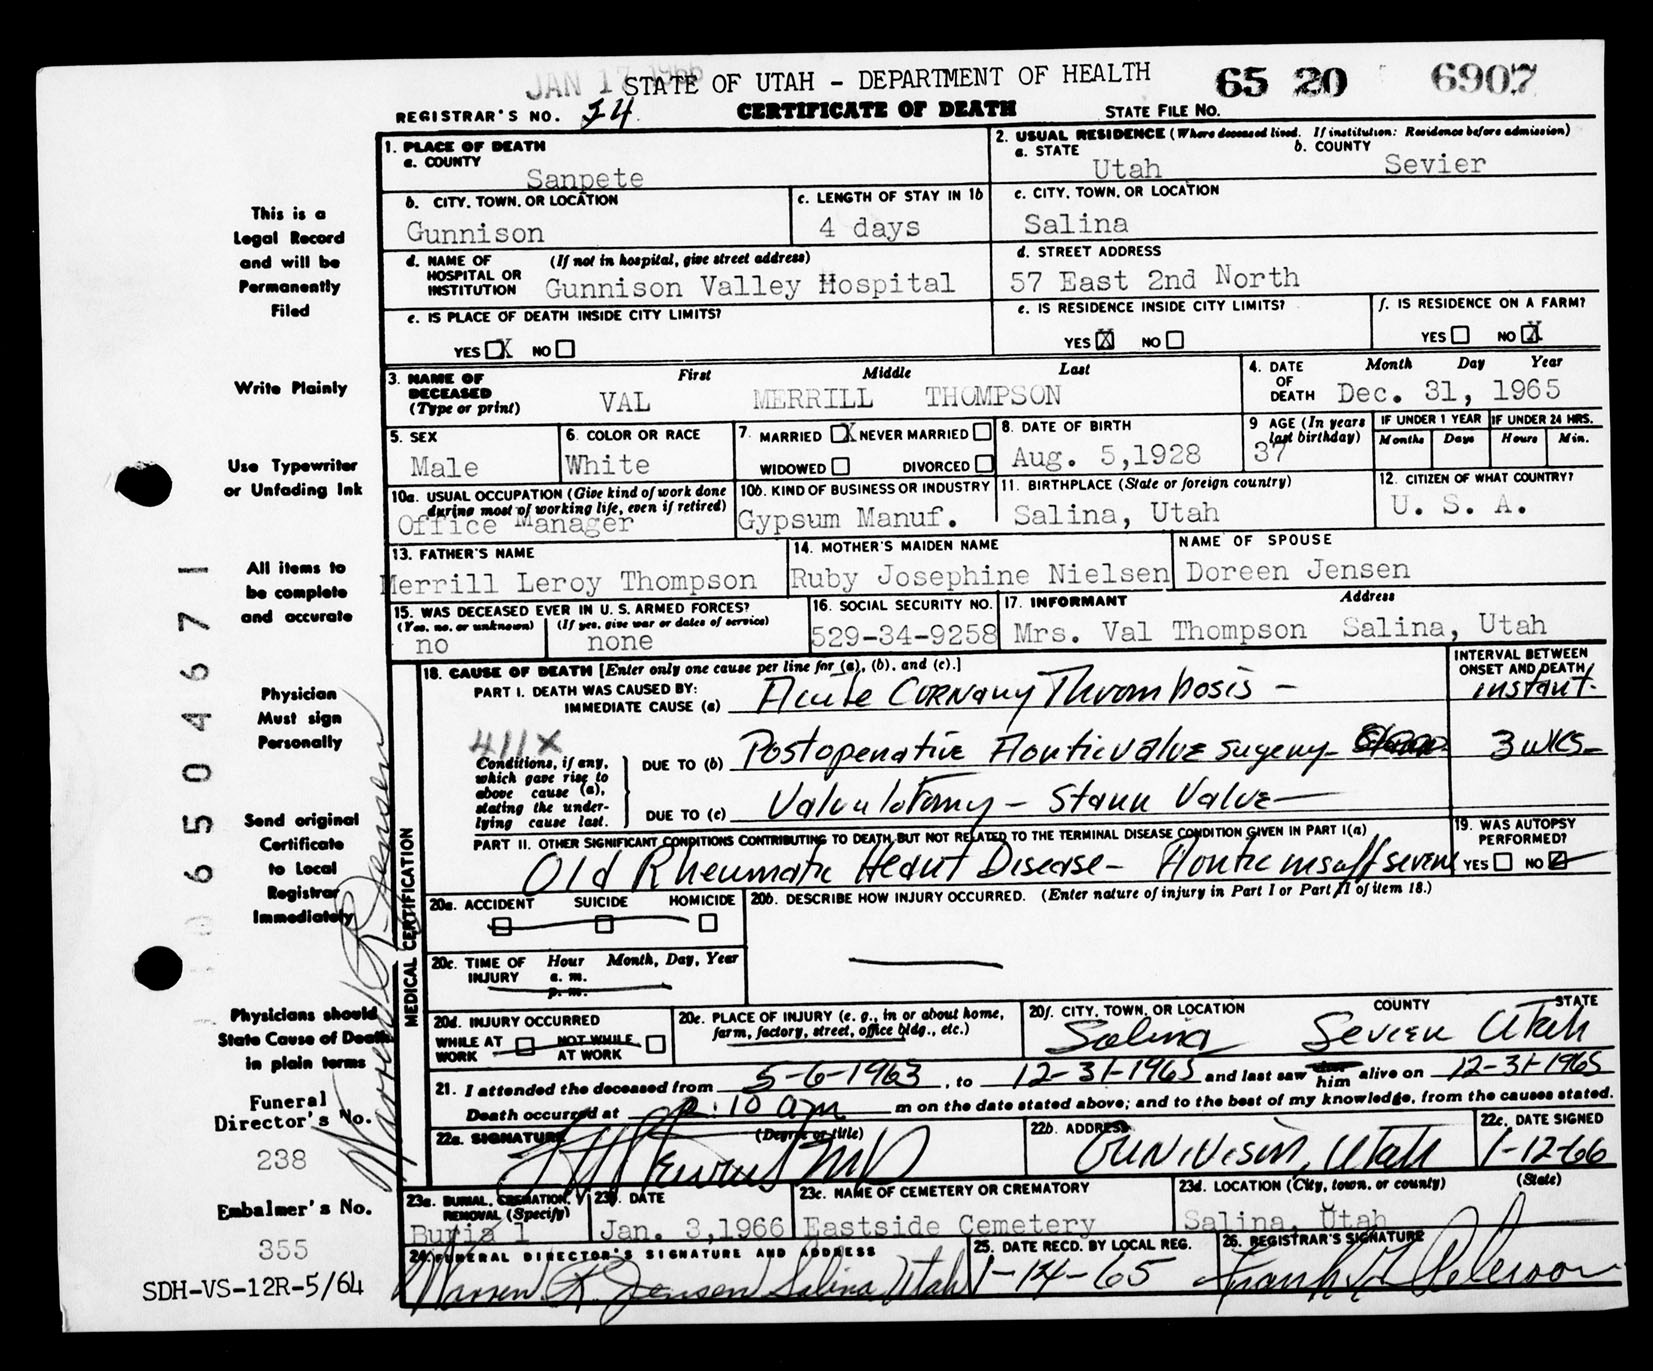 JAN 17 1966
STATE OF UTAH - DEPARTMENT OF HEALTH 65 20 6907
REGISTRAR'S NO. 74 CERTIFICATE OF DEATH STATE FILE NO.
This is a
Legal Record
and will be
Permanently
Filed
Write Plainly
Use Typewriter
or Unfading Ink
All items to
be complete
and accurate
Physician
Must sign
Personally
Send original
Certificate
to Local
Registrar
Immediately
Physicians should
State Cause of Death
in plain terms
Funeral
Director's No.
238
Embalmer's No.
355
SDH-VS-12R-5/64
0 6 5 0 4 6 7 1
Warren R Jensen
1. PLACE OF DEATH
a. COUNTY
Sanpete
2. USUAL RESIDENCE (Where deceased lived. If institution: Residence before admission)
a. STATE b. COUNTY
Utah Sevier
b. CITY, TOWN, OR LOCATION
Gunnison
c. LENGTH OF STAY IN 1b
4 days
c. CITY, TOWN, OR LOCATION
Salina
d. NAME OF (If not in hospital, give street address)
HOSPITAL OR
INSTITUTION Gunnison Valley Hospital
d. STREET ADDRESS
57 East 2nd North
e. IS PLACE OF DEATH INSIDE CITY LIMITS?
YES X NO
e. IS RESIDENCE INSIDE CITY LIMITS?
YES X NO
f. IS RESIDENCE ON A FARM?
YES NO X
3. NAME OF First Middle Last
DECEASED
(Type or print) VAL MERRILL THOMPSON
4. DATE Month Day Year
OF
DEATH Dec. 31, 1965
5. SEX
Male
6. COLOR OR RACE
White
7. MARRIED X NEVER MARRIED
WIDOWED DIVORCED
8. DATE OF BIRTH
Aug. 5,1928
9 AGE (In years
last birthday)
37
IF UNDER 1 YEAR IF UNDER 24 HRS.
Months Days Hours Min.
10a. USUAL OCCUPATION (Give kind of work done
during most of working life, even if retired)
Office Manager
10b. KIND OF BUSINESS OR INDUSTRY
Gypsum Manuf.
11. BIRTHPLACE (State or foreign country)
Salina, Utah
12. CITIZEN OF WHAT COUNTRY?
U. S. A.
13. FATHER'S NAME
Merrill Leroy Thompson
14. MOTHER'S MAIDEN NAME
Ruby Josephine Nielsen
NAME OF SPOUSE
Doreen Jensen
15. WAS DECEASED EVER IN U. S. ARMED FORCES?
(Yes, no, or unknown) (If yes, give war or dates of service)
no none
16. SOCIAL SECURITY NO.
529-34-9258
17. INFORMANT Address
Mrs. Val Thompson Salina, Utah
MEDICAL CERTIFICATION
18. CAUSE OF DEATH [Enter only one cause per line for (a), (b), and (c).]
INTERVAL BETWEEN
ONSET AND DEATH
PART I. DEATH WAS CAUSED BY:
IMMEDIATE CAUSE (a) Acute Cornary Thrombosis - instant.
411X
Conditions, if any,
which gave rise to
above cause (a),
stating the under-
lying cause last.
DUE TO (b) Postoperative Aortic valve surgery - 3 wks -
DUE TO (c) Valvulotomy - Starr Valve
PART II. OTHER SIGNIFICANT CONDITIONS CONTRIBUTING TO DEATH BUT NOT RELATED TO THE TERMINAL DISEASE CONDITION GIVEN IN PART I(a)
Old Rheumatic Heart Disease - Aortic insuff severe
19. WAS AUTOPSY
PERFORMED?
YES NO
20a. ACCIDENT SUICIDE HOMICIDE
20b. DESCRIBE HOW INJURY OCCURRED. (Enter nature of injury in Part I or Part II of item 18.)
20c. TIME OF Hour Month, Day, Year
INJURY a. m.
p. m.
20d. INJURY OCCURRED
WHILE AT NOT WHILE
WORK AT WORK
20e. PLACE OF INJURY (e. g., in or about home,
farm, factory, street, office bldg., etc.)
20f. CITY, TOWN, OR LOCATION COUNTY STATE
Salina Sevier Utah
21. I attended the deceased from 5-6-1963, to 12-31-1965 and last saw him alive on 12-31-1965
Death occurred at :10 am m on the date stated above; and to the best of my knowledge, from the causes stated.
22a. SIGNATURE (Degree or title)
MD
22b. ADDRESS
Gunnison, Utah
22c. DATE SIGNED
1-12-66
23a. BURIAL, CREMATION,
REMOVAL (Specify)
Buria l
23b. DATE
Jan. 3,1966
23c. NAME OF CEMETERY OR CREMATORY
Eastside Cemetery
23d. LOCATION (City, town, or county) (State)
Salina, Utah
24. FUNERAL DIRECTOR'S SIGNATURE AND ADDRESS
Warren R. Jensen Salina Utah
25. DATE RECD. BY LOCAL REG.
1-14-65
26. REGISTRAR'S SIGNATURE
Frank M Peterson